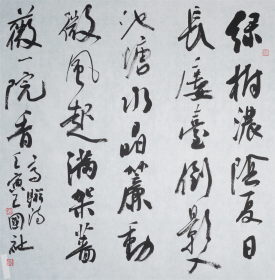 绿樹濃陰夏日
長楼臺倒影入
池塘水晶簾動
微風起满架蔷
薇一院香 高駢詩 壬寅國社